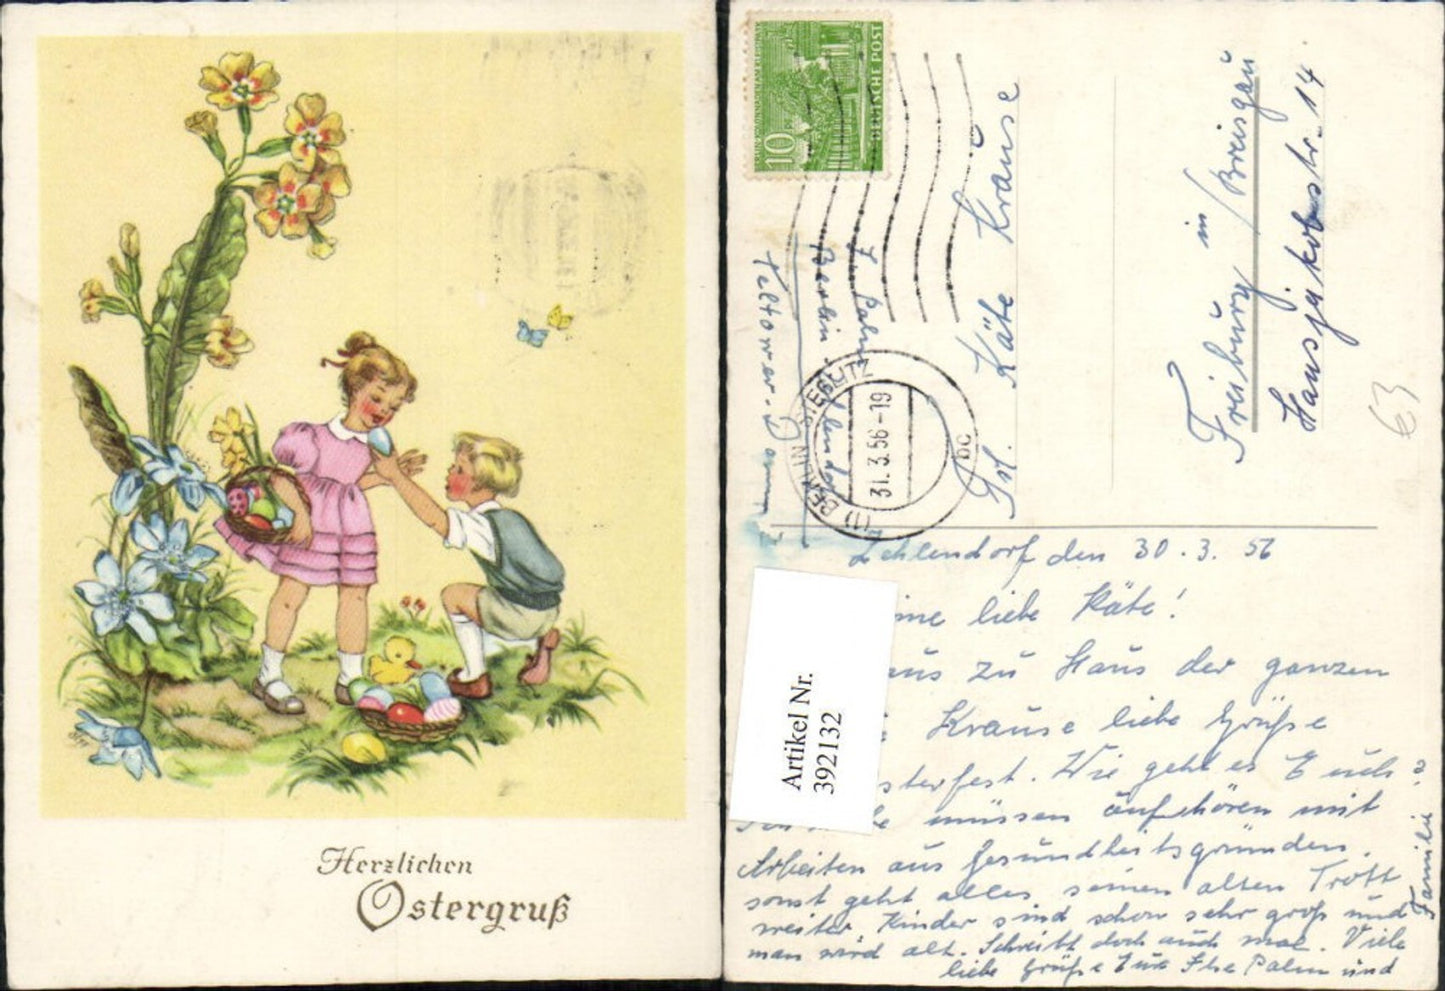 Herzlichen
Ostergruß
10
DEUTSCHE POST
(1) BERLIN-STEGLITZ
31.3.56-19
bc
Berlin
Teltower-Damm
Frl. Käte Krause
in
Freiburg / Breisgau
Hansjakobstr. 14
63
Zehlendorf den 30.3.56
liebe Käte!
aus zu Haus der ganzen
Krause liebe Grüße
sterfest. Wie geht es Euch?
müssen aufhören mit
Arbeiten aus Gesundheitsgründen,
sonst geht alles seinen alten Trott
weiter. Kinder sind schon sehr groß und
man wird alt. Schreibt doch auch mal. Viele
liebe Grüße Eure Ilse Palm und
Familie
Artikel Nr.
392132